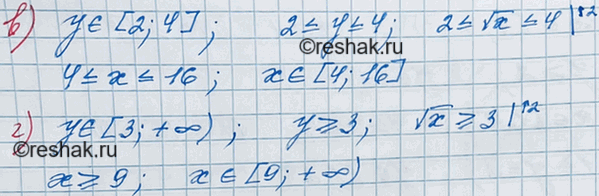 в) y ∈ [2; 4]; 2 ≤ y ≤ 4; 2 ≤ √x ≤ 4 |↑2
©reshak.ru
4 ≤ x ≤ 16; x ∈ [4; 16]
г) y ∈ [3; +∞); y ≥ 3; √x ≥ 3 |↑2
©reshak.ru
x ≥ 9; x ∈ [9; +∞)